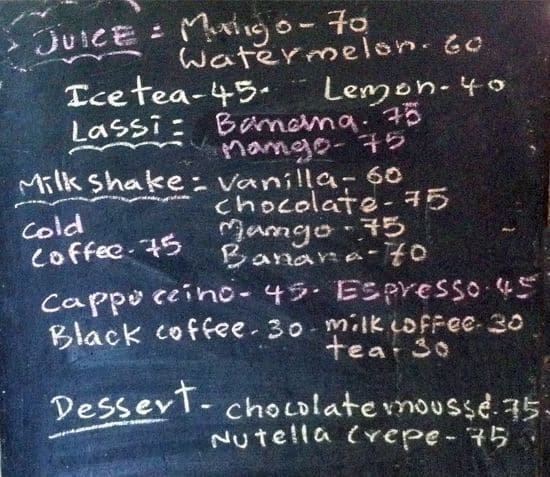 JUICE = Mango - 70
Watermelon - 60
Ice tea - 45. Lemon - 40
Lassi = Banana - 75
mango - 75
Milk shake = vanilla - 60
chocolate - 75
Cold Mango - 75
Coffee - 75 Banana - 70
Cappuccino - 45. Espresso. 45
Black coffee. 30 - milk coffee. 30
tea - 30
Dessert - chocolate mousse. 75
Nutella Crepe - 75